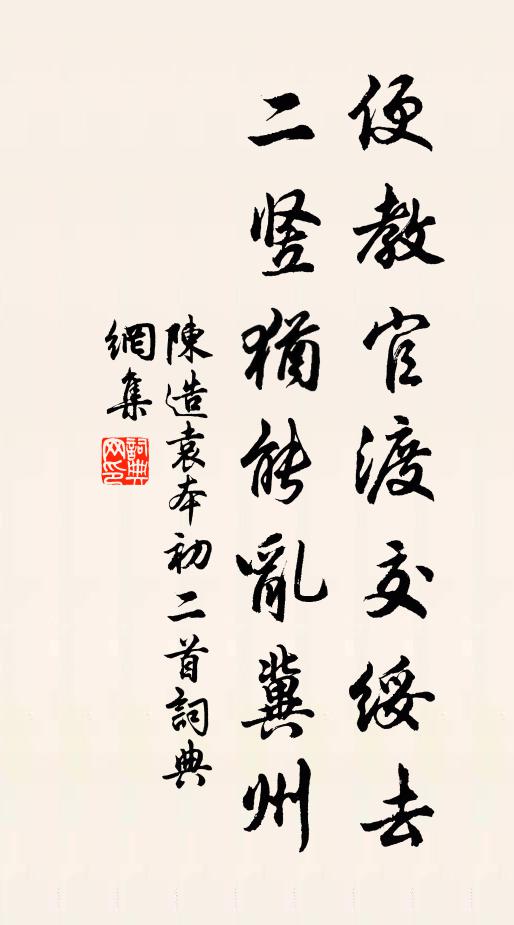 便教官渡交綏去
二豎猶能亂冀州
陳造袁本初二首詞典
網集
詞典網印